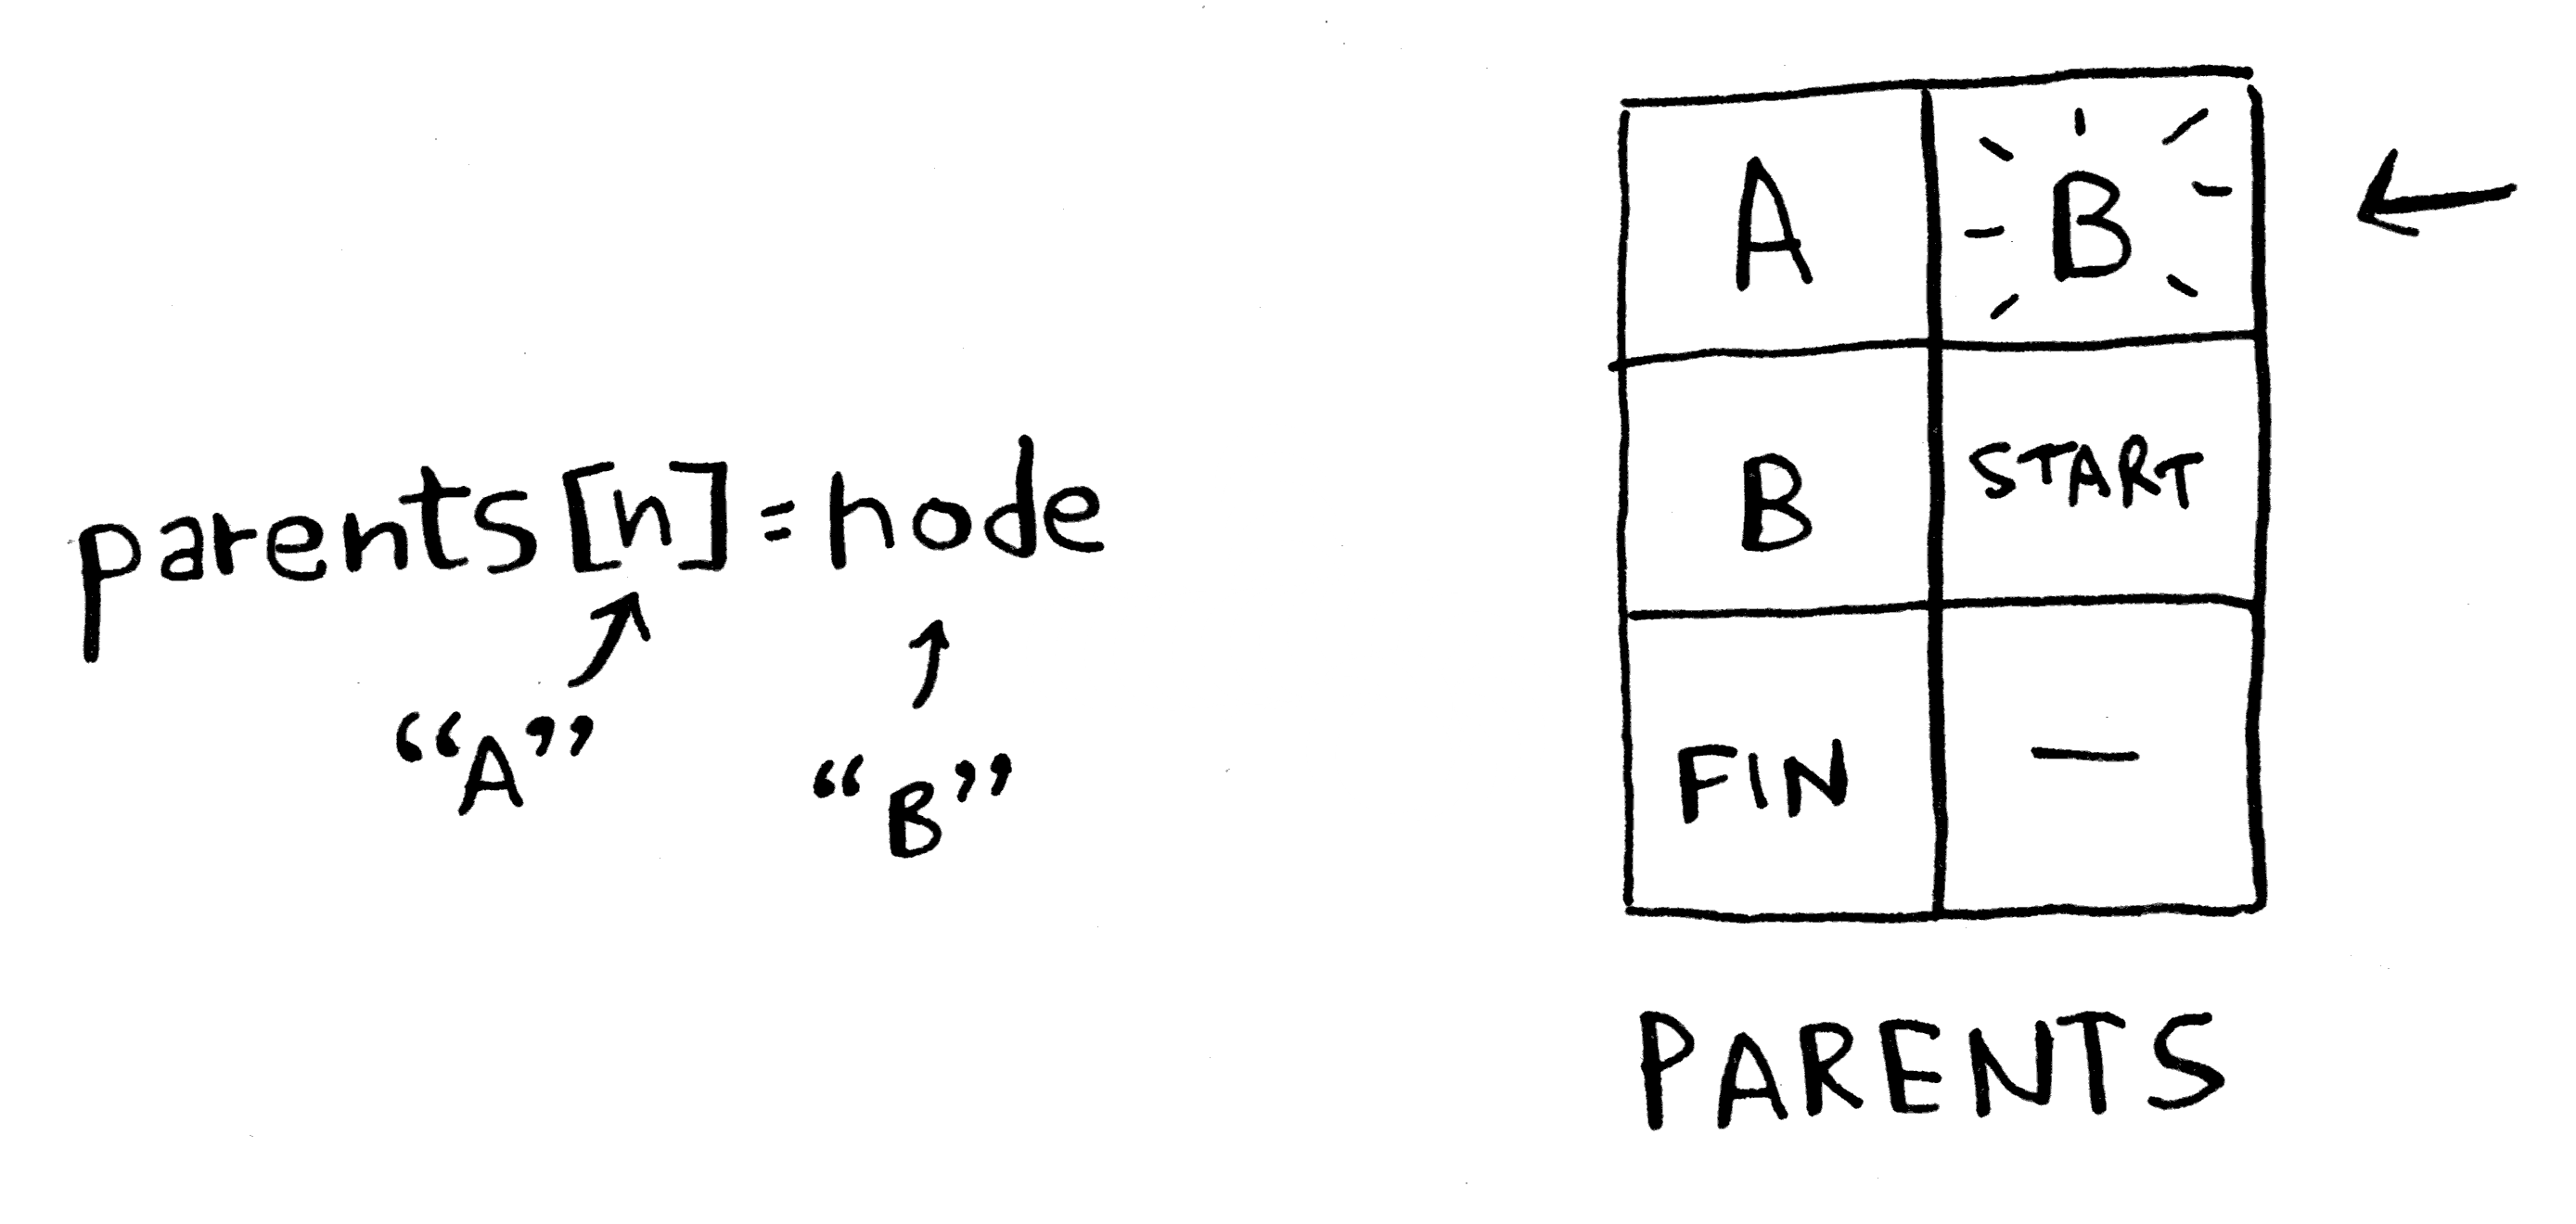 parents[n]=node
“A”
“B”
A B
B START
FIN —
PARENTS